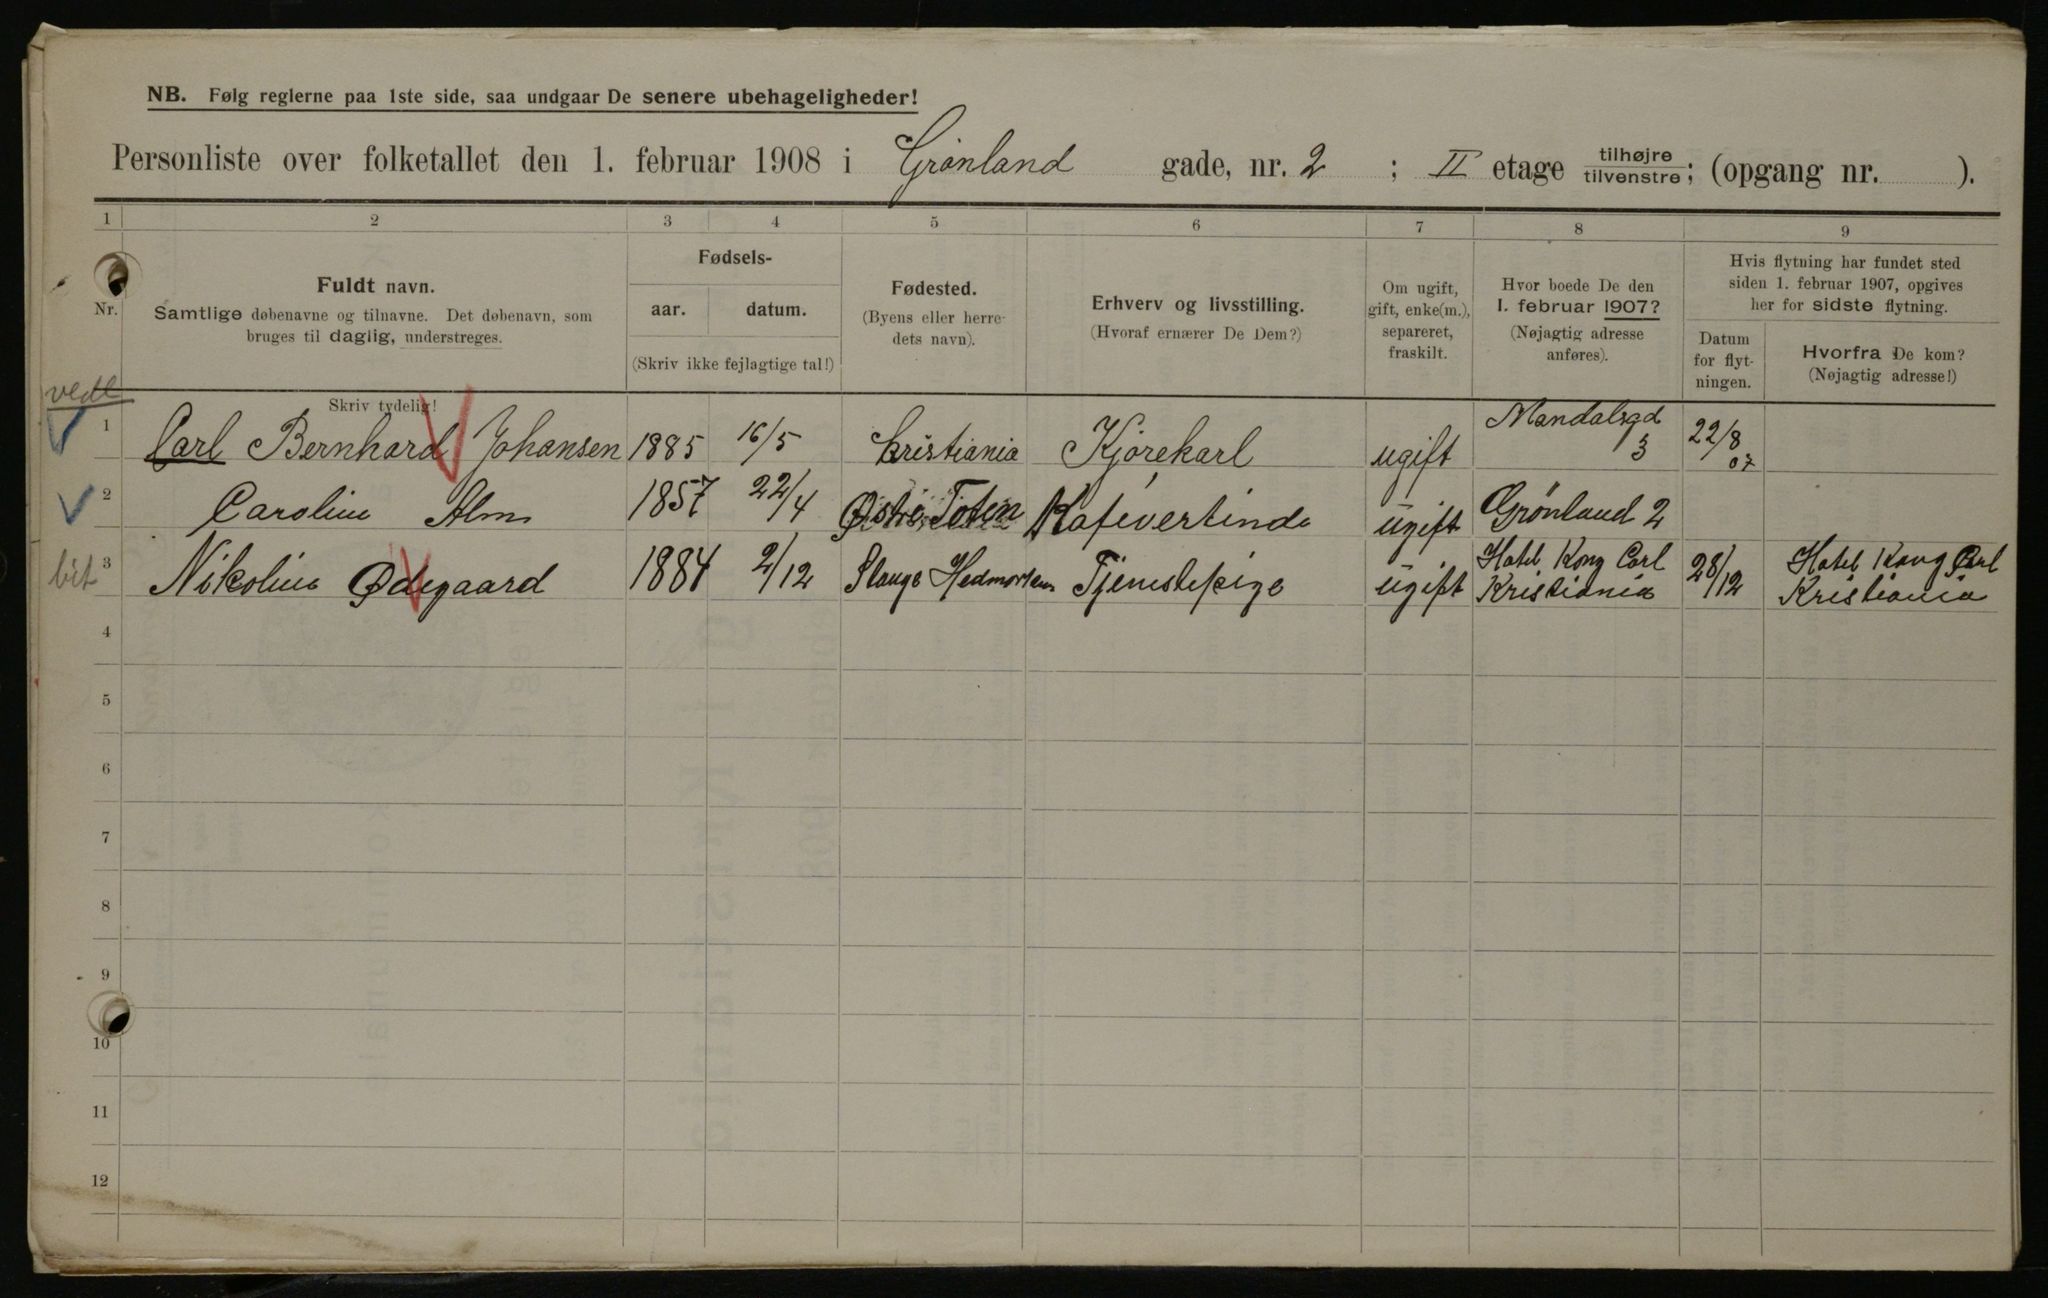 NB. Følg reglerne paa 1ste side, saa undgaar De senere ubehageligheder!
Personliste over folketallet den 1. februar 1908 i Grønland gade, nr. 2 ; II etage tilhøjre tilvenstre; (opgang nr. ).
1 2 3 4 5 6 7 8 9
Nr.
Fuldt navn.
Samtlige døbenavne og tilnavne. Det døbenavn, som
bruges til daglig, understreges.
Skriv tydelig!
Fødsels-
aar. datum.
(Skriv ikke fejlagtige tal!)
Fødested.
(Byens eller herre-
dets navn).
Erhverv og livsstilling.
(Hvoraf ernærer De Dem?)
Om ugift,
gift, enke(m.),
separeret,
fraskilt.
Hvor boede De den
1. februar 1907?
(Nøjagtig adresse
anføres).
Hvis flytning har fundet sted
siden 1. februar 1907, opgives
her for sidste flytning.
Datum
for flyt-
ningen.
Hvorfra De kom?
(Nøjagtig adresse!)
vedl
1 Carl Bernhard Johansen 1885 16/5 Kristiania Kjørekarl ugift Mandalsgd 3 22/8 07
2 Caroline Alm 1857 22/4 Østre Toten Kafévertinde ugift Grönland 2
3 Nikoline Ødegaard 1884 2/12 Stange Hedmarken Tjenestepige ugift Hotel Kong Carl Kristiania 28/12 Hotel Kong Carl Kristiania
4
5
6
7
8
9
10
11
12